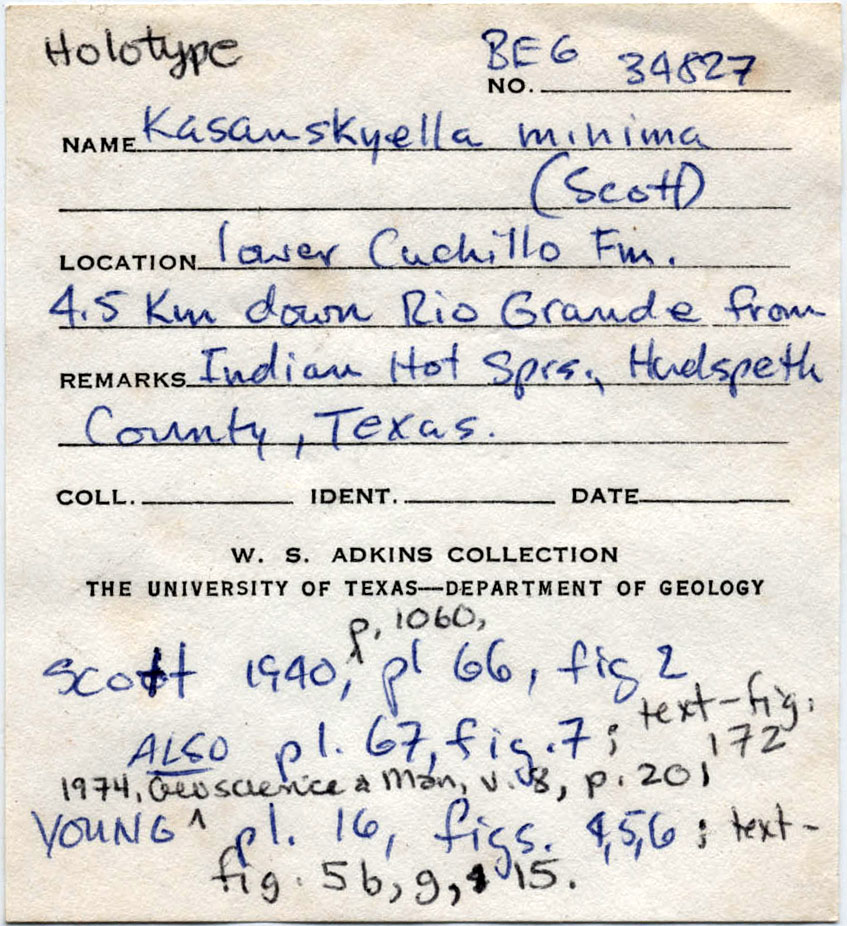 Holotype
BEG
NO. 34827
NAME Kasanskyella minima
(Scott)
LOCATION lower Cuchillo Fm.
4.5 Km down Rio Grande from
REMARKS Indian Hot Sprs., Hudspeth
County, Texas.
COLL. IDENT. DATE
W. S. ADKINS COLLECTION
THE UNIVERSITY OF TEXAS—DEPARTMENT OF GEOLOGY
p. 1060,
Scott 1940, pl 66, fig 2
ALSO pl. 67, fig. 7; text-fig.
172
1974, Geoscience & Man, v. 8, p. 201
YOUNG ^ pl. 16, figs. 4,5,6; text-
fig. 5b, g, & 15.